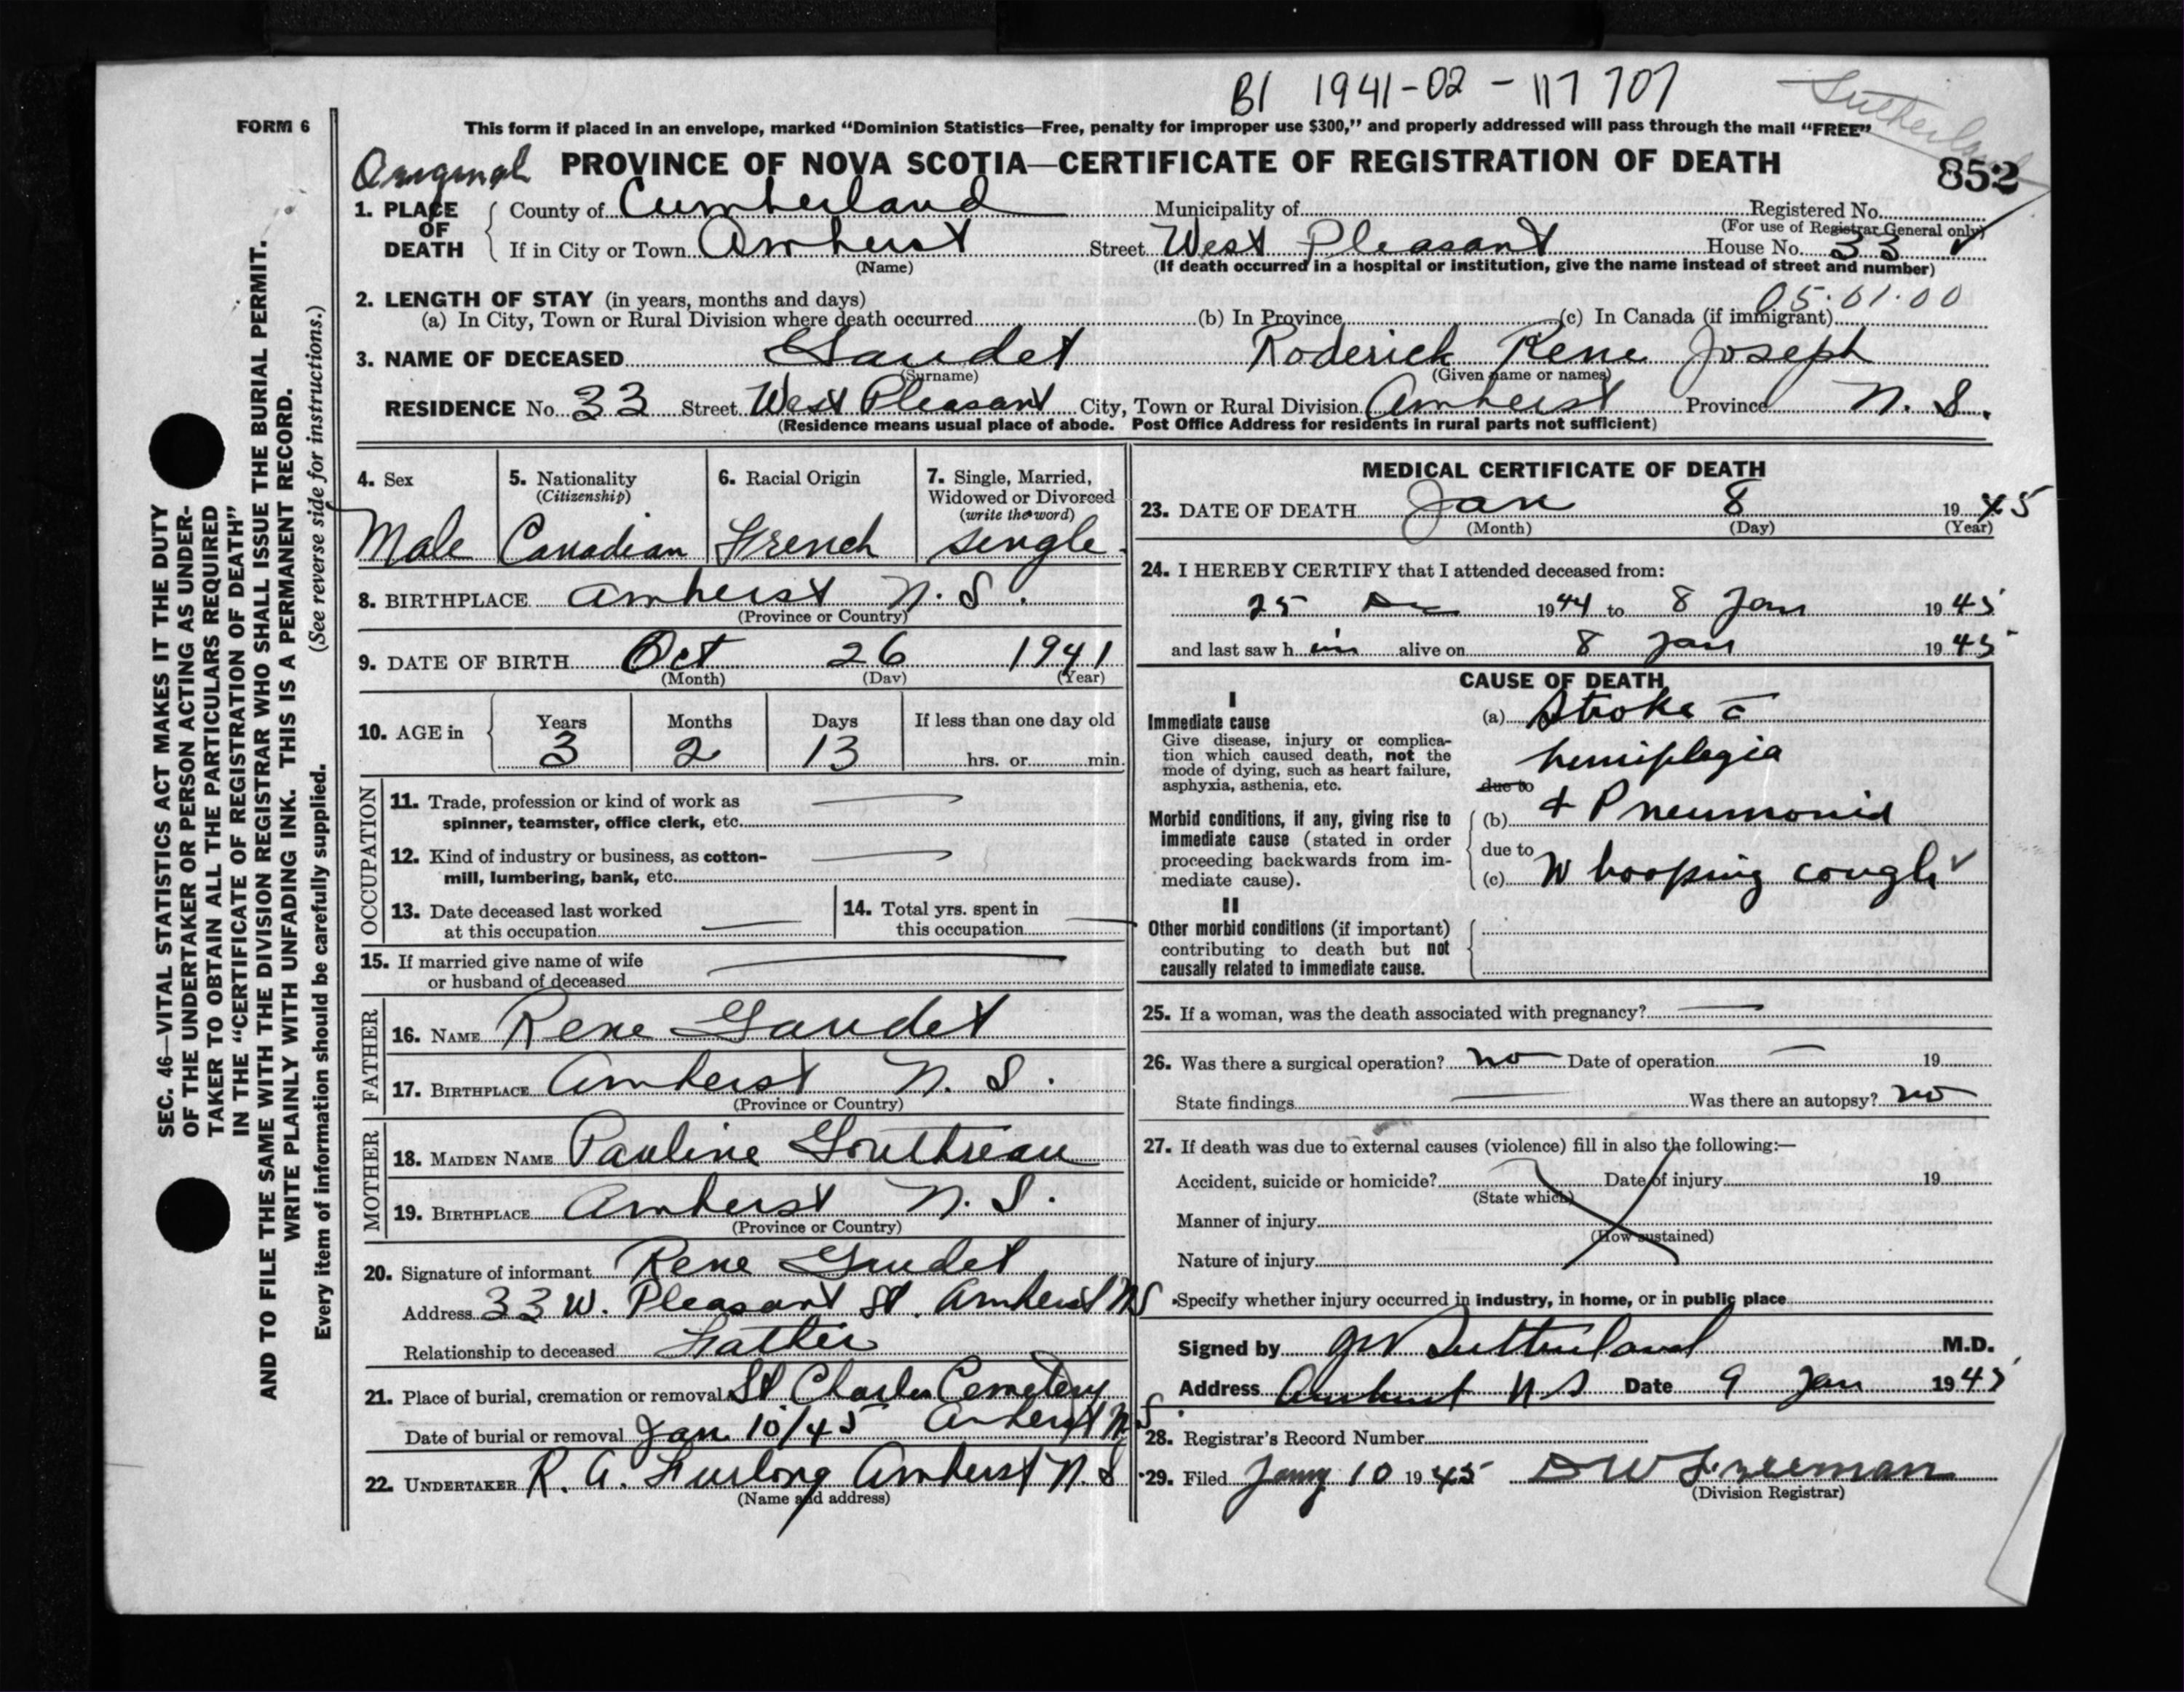 B1 1941-02-117 707
Sutherland
FORM 6
This form if placed in an envelope, marked "Dominion Statistics—Free, penalty for improper use $300," and properly addressed will pass through the mail "FREE"
Original PROVINCE OF NOVA SCOTIA—CERTIFICATE OF REGISTRATION OF DEATH
852
1. PLACE OF DEATH
County of Cumberland Municipality of Registered No.
(For use of Registrar General only)
If in City or Town Amherst Street West Pleasant House No. 33
(Name) (If death occurred in a hospital or institution, give the name instead of street and number)
2. LENGTH OF STAY (in years, months and days) 05.01.00
(a) In City, Town or Rural Division where death occurred (b) In Province (c) In Canada (if immigrant)
3. NAME OF DECEASED Gaudet Roderick Rene Joseph
(Surname) (Given name or names)
RESIDENCE No. 33 Street West Pleasant City, Town or Rural Division Amherst Province N. S.
(Residence means usual place of abode. Post Office Address for residents in rural parts not sufficient)
4. Sex 5. Nationality 6. Racial Origin 7. Single, Married,
(Citizenship) Widowed or Divorced
(write the word)
Male Canadian French Single.
8. BIRTHPLACE Amherst N. S.
(Province or Country)
9. DATE OF BIRTH Oct 26 1941
(Month) (Day) (Year)
10. AGE in Years Months Days If less than one day old
3 2 13 hrs. or min.
OCCUPATION
11. Trade, profession or kind of work as
spinner, teamster, office clerk, etc.
12. Kind of industry or business, as cotton-
mill, lumbering, bank, etc.
13. Date deceased last worked 14. Total yrs. spent in
at this occupation this occupation
15. If married give name of wife
or husband of deceased
FATHER
16. NAME Rene Gaudet
17. BIRTHPLACE Amherst N. S.
(Province or Country)
MOTHER
18. MAIDEN NAME Pauline
19. BIRTHPLACE Amherst N. S.
(Province or Country)
20. Signature of informant Rene Gaudet
Address 33 W. Pleasant St. Amherst NS
Relationship to deceased Father
21. Place of burial, cremation or removal St Charles Cemetery
Date of burial or removal Jan 10/45 Amherst N.S.
22. UNDERTAKER R. A. Furlong Amherst N. S
(Name and address)
MEDICAL CERTIFICATE OF DEATH
23. DATE OF DEATH Jan 8 1945
(Month) (Day) (Year)
24. I HEREBY CERTIFY that I attended deceased from:
25 Dec 1944 to 8 Jan 1945
and last saw h im alive on 8 Jan 1945
CAUSE OF DEATH
I
Immediate cause (a) Stroke c̄
Give disease, injury or complica-
tion which caused death, not the hemiplegia
mode of dying, such as heart failure,
asphyxia, asthenia, etc. due to
Morbid conditions, if any, giving rise to (b) + Pneumonia
immediate cause (stated in order
proceeding backwards from im- due to
mediate cause). (c) Whooping cough
II
Other morbid conditions (if important)
contributing to death but not
causally related to immediate cause.
25. If a woman, was the death associated with pregnancy?
26. Was there a surgical operation? no Date of operation 19
State findings Was there an autopsy? no
27. If death was due to external causes (violence) fill in also the following:—
Accident, suicide or homicide? Date of injury 19
(State which)
Manner of injury
(How sustained)
Nature of injury
Specify whether injury occurred in industry, in home, or in public place
Signed by JW Sutherland M.D.
Address Amherst N S Date 9 Jan 1945
28. Registrar's Record Number
29. Filed Jany 10 1945 DW Freeman
(Division Registrar)
SEC. 46—VITAL STATISTICS ACT MAKES IT THE DUTY
OF THE UNDERTAKER OR PERSON ACTING AS UNDER-
TAKER TO OBTAIN ALL THE PARTICULARS REQUIRED
IN THE "CERTIFICATE OF REGISTRATION OF DEATH"
AND TO FILE THE SAME WITH THE DIVISION REGISTRAR WHO SHALL ISSUE THE BURIAL PERMIT.
WRITE PLAINLY WITH UNFADING INK. THIS IS A PERMANENT RECORD.
Every item of information should be carefully supplied. (See reverse side for instructions.)